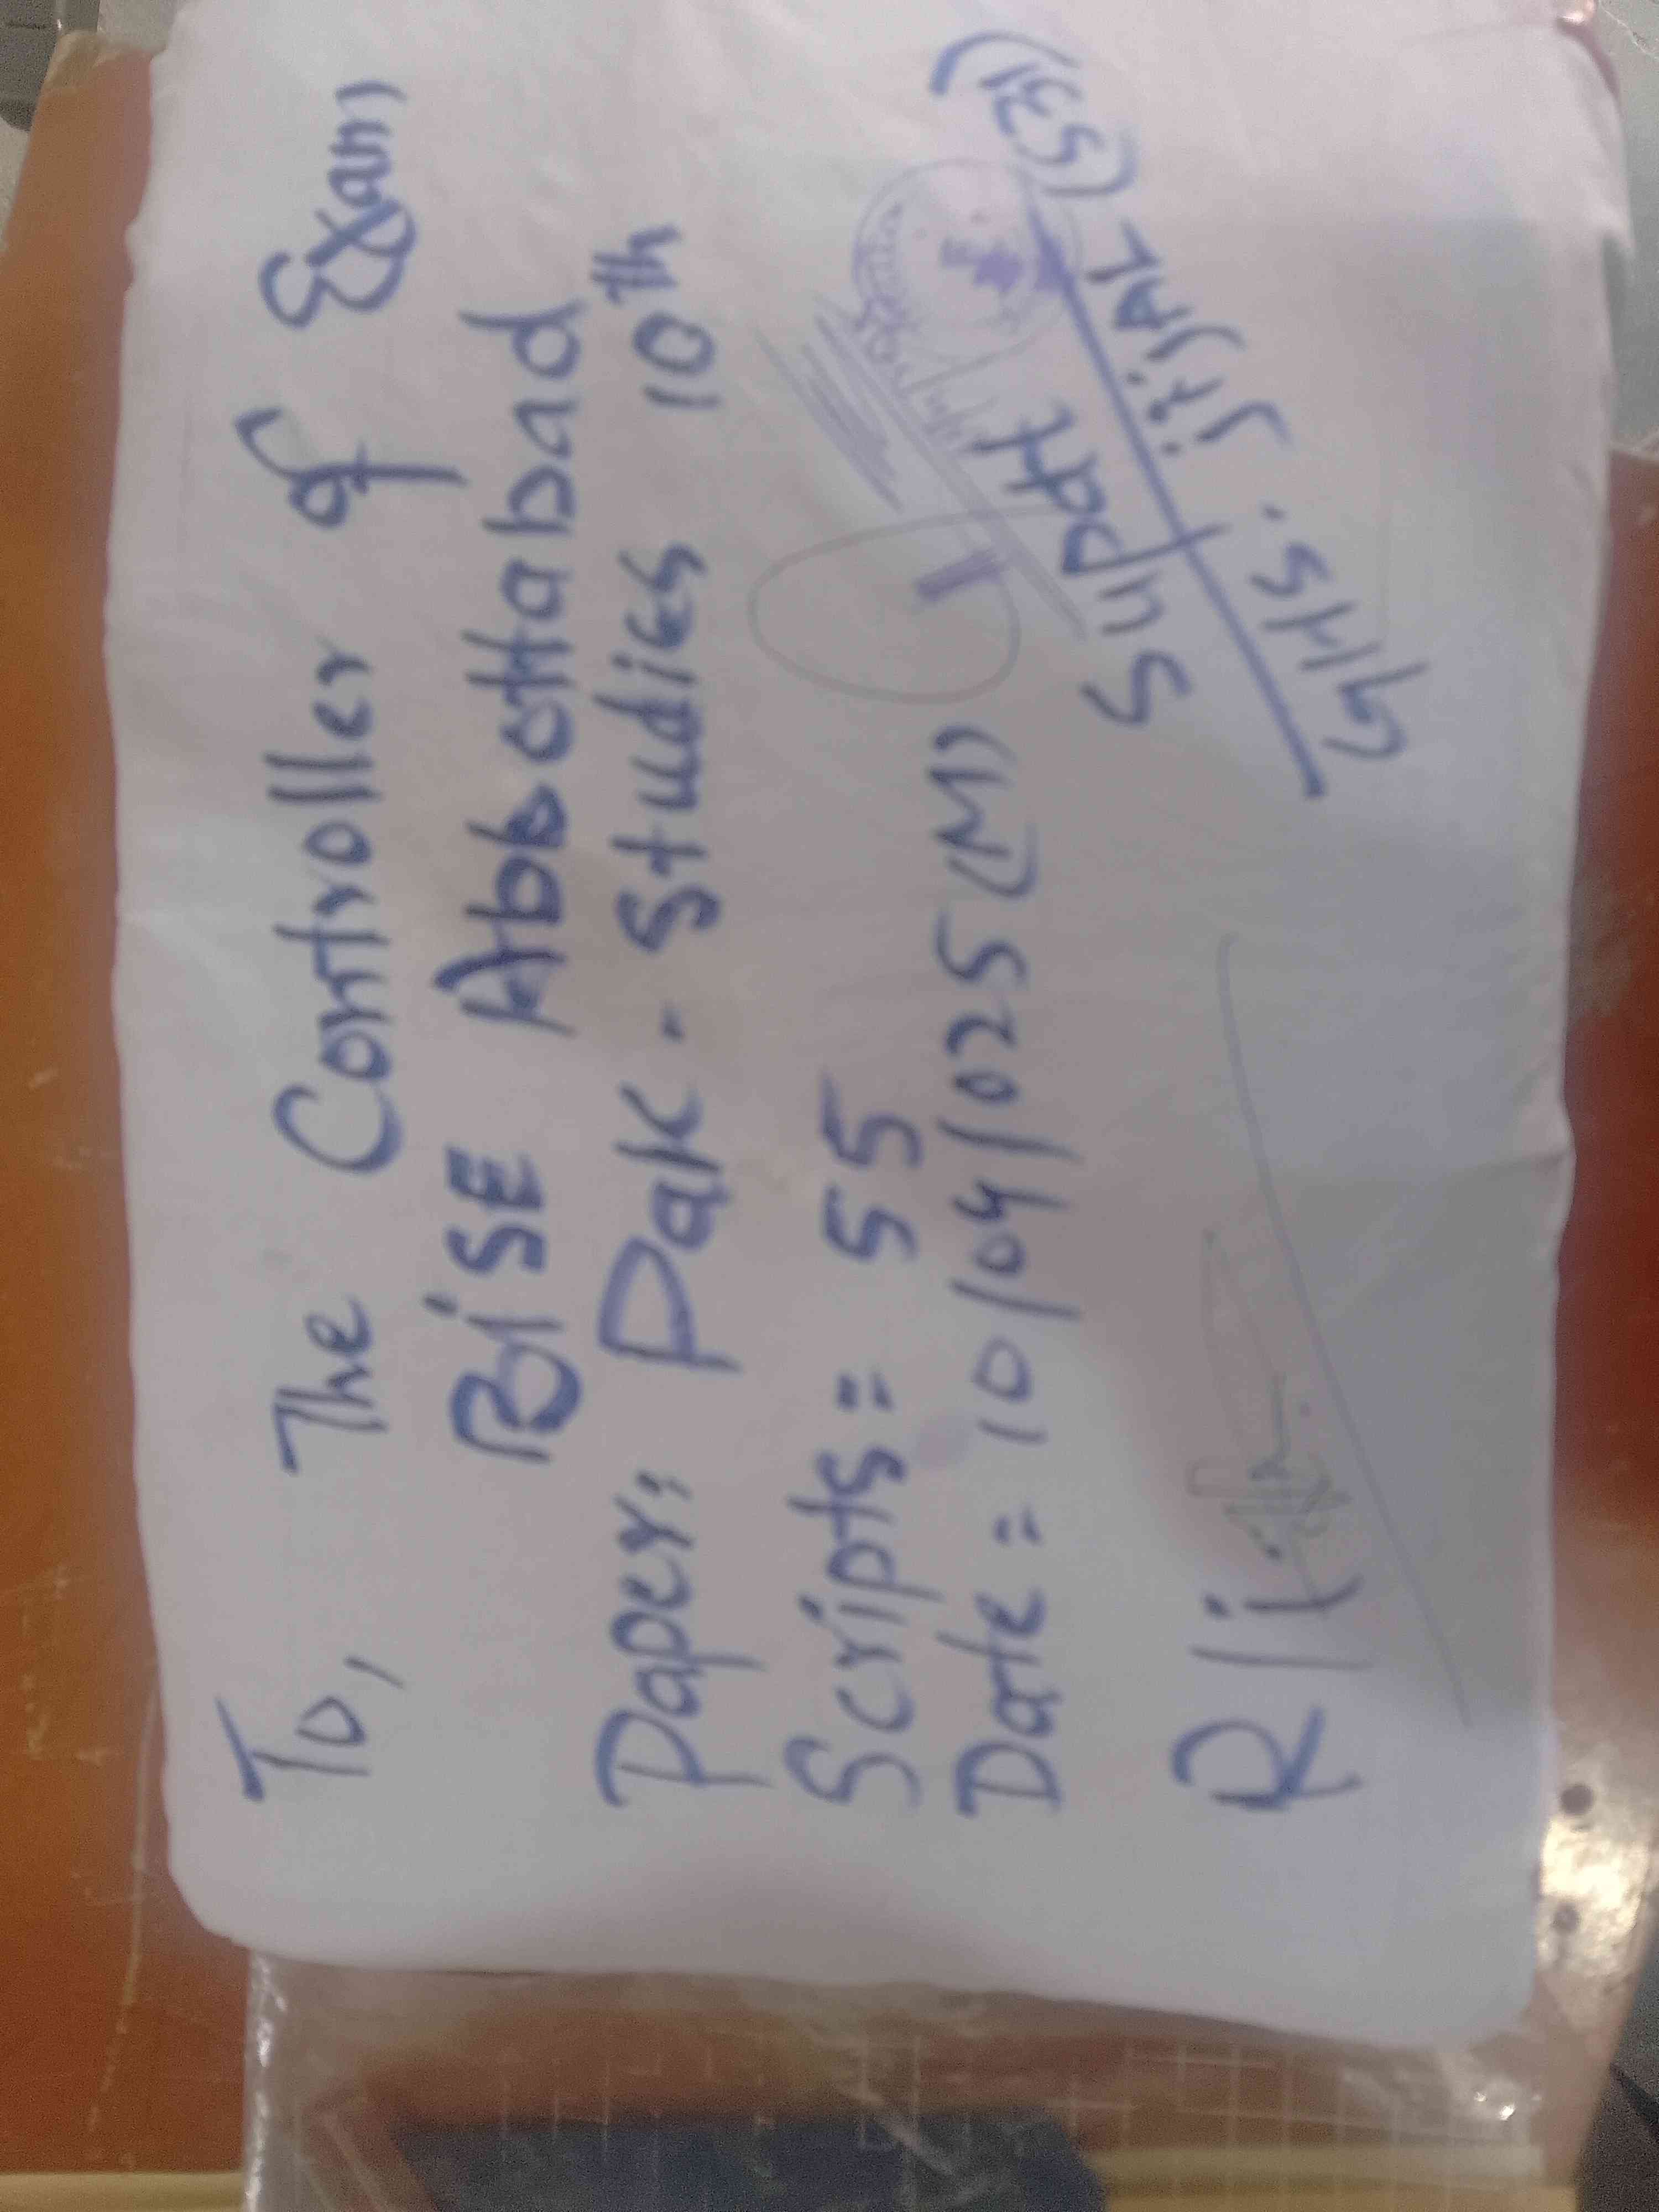 To, The Controller of Exam
BiSE Abbottabad
Paper; Pak. Studies 10th
Scripts = 55
Date = 10/04/025 (M)
R/I
Supdt
GHS. JiJAL (531)